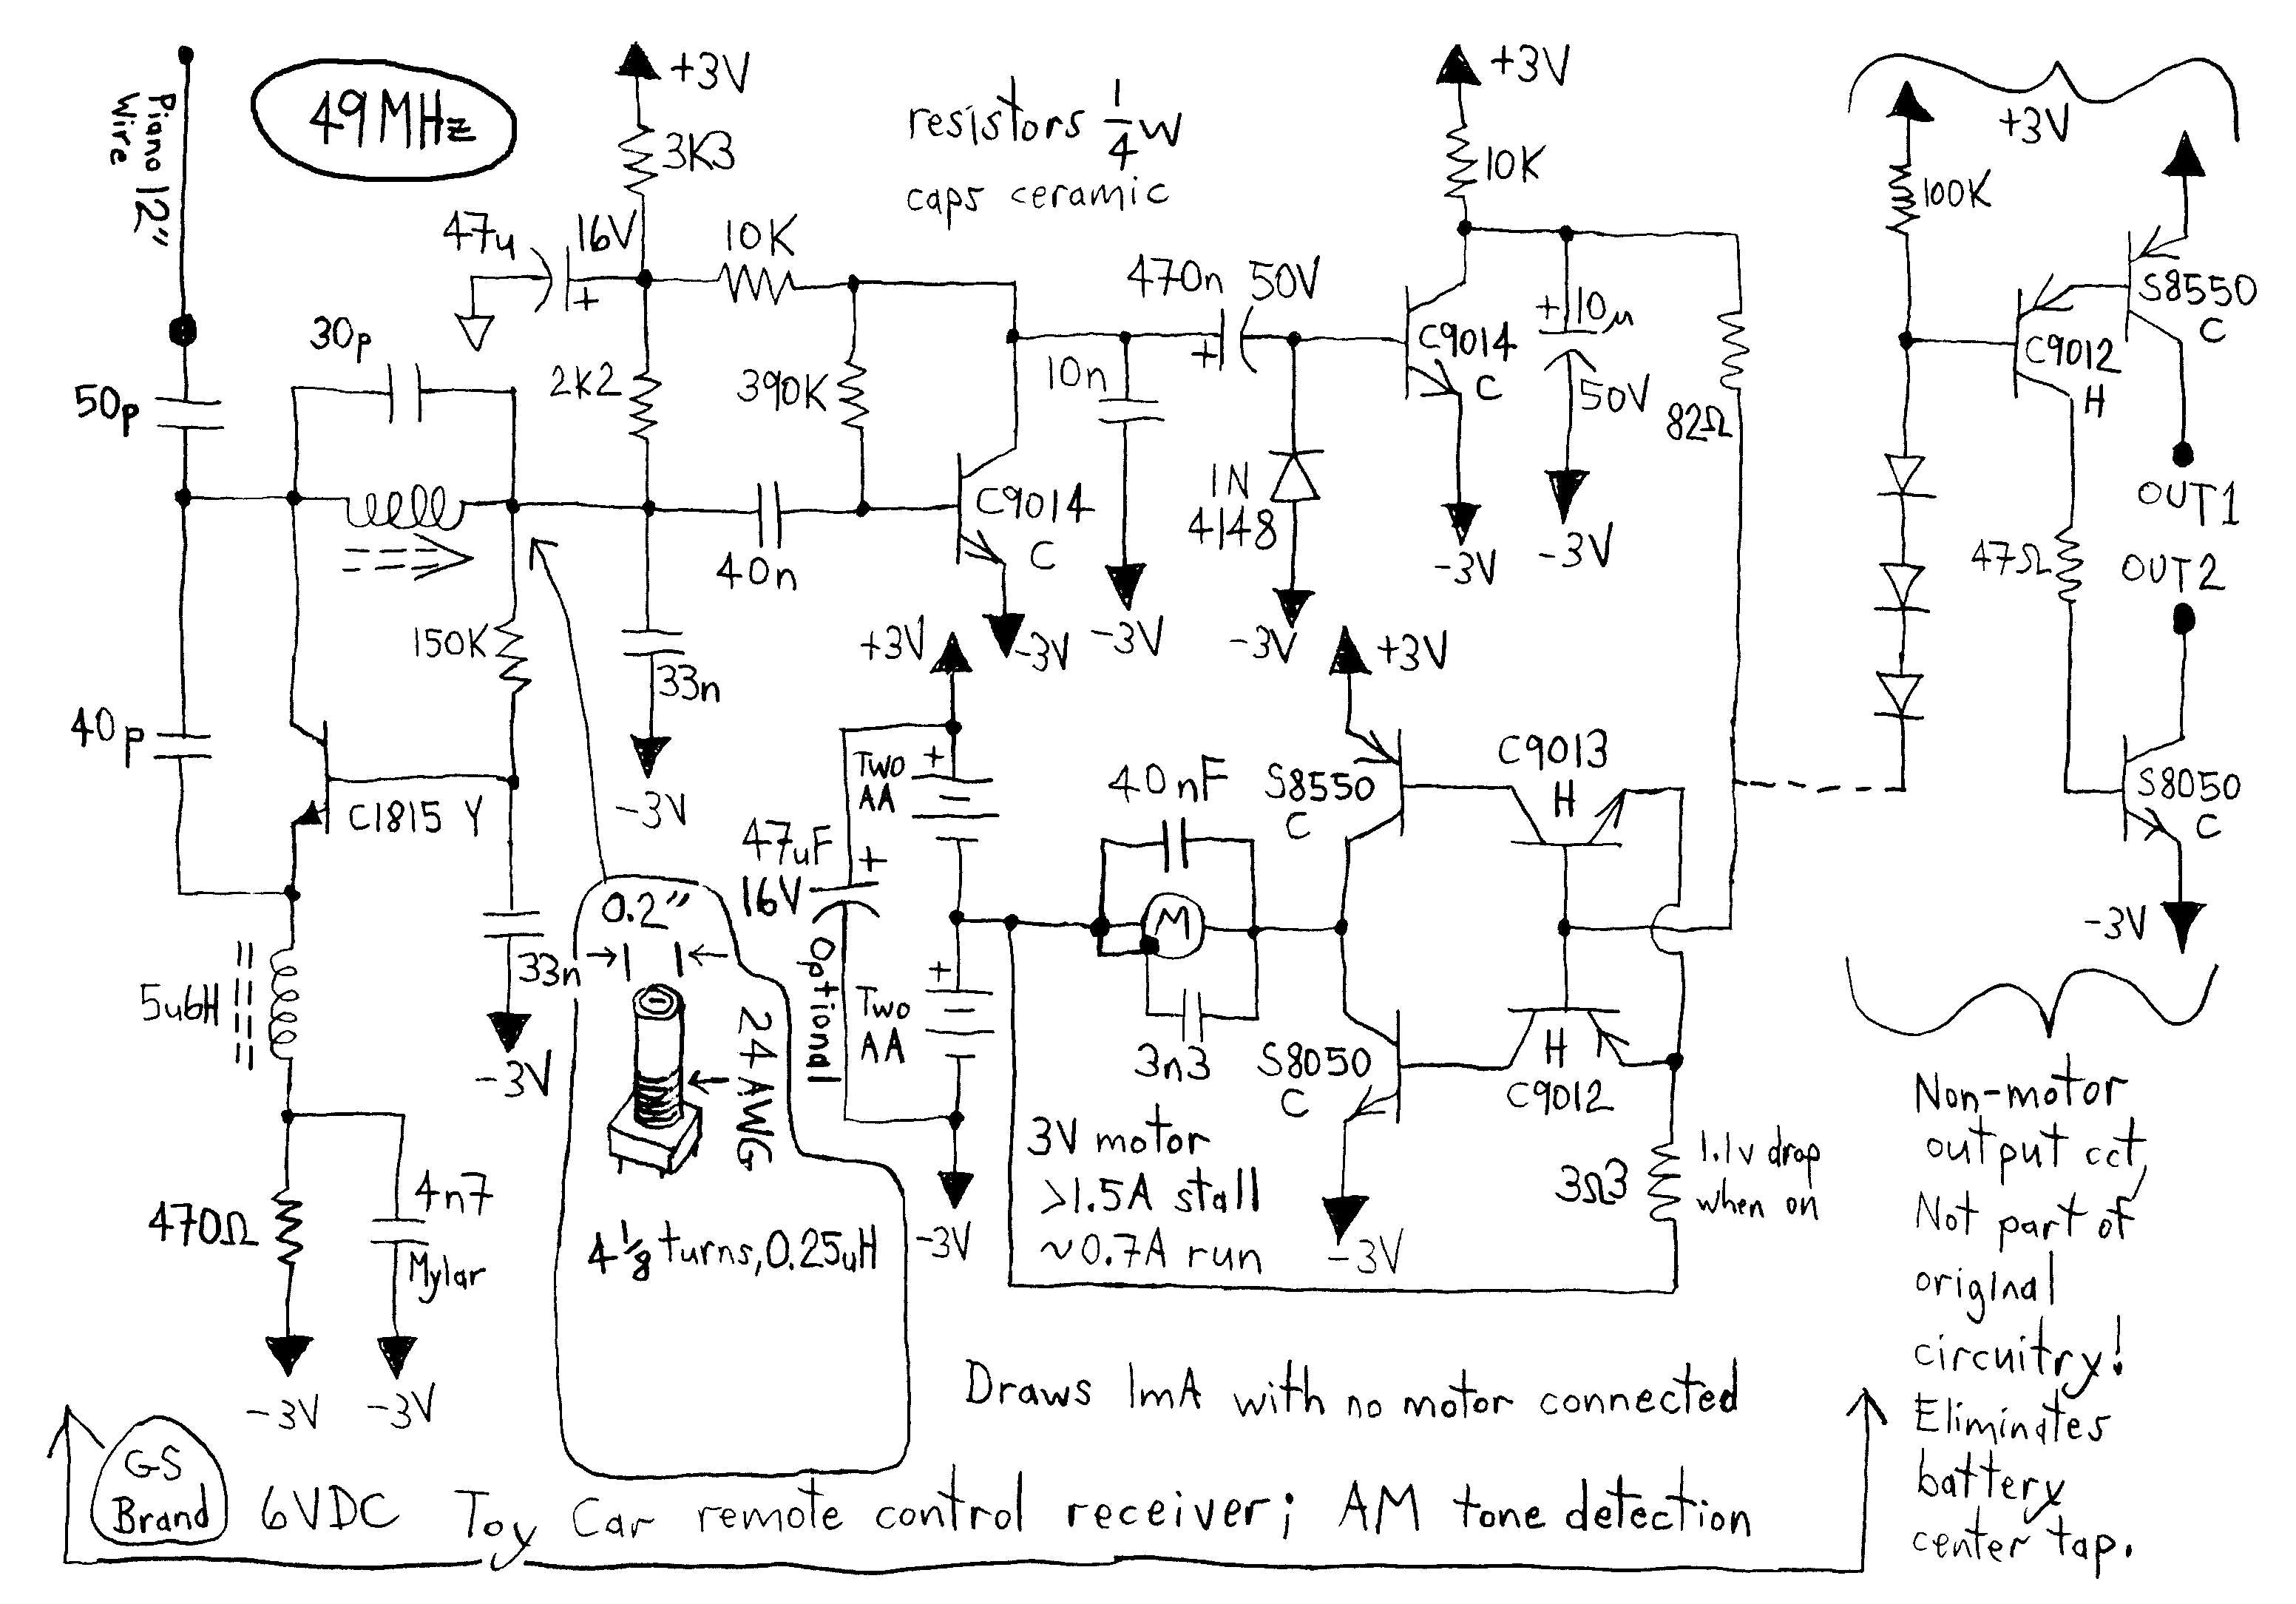 Piano 12"
Wire
49MHz
+3V
3K3
resistors 1/4 W
caps ceramic
+3V
10K
+3V
100K
S8550
C
C9012
H
47u
16V
+
10K
470n
50V
+
C9014
C
+
10µ
50V
82Ω
30p
50p
2K2
390K
10n
1N
4148
-3V
-3V
OUT1
OUT2
47Ω
C9014
C
40n
150K
33n
-3V
-3V
-3V
-3V
40p
C1815 Y
+3V
+3V
Two
AA
+
47uF
16V
+
Optional
40nF
S8550
C
C9013
H
S8050
C
-3V
0.2"
24 AWG
4 1/8 turns, 0.25uH
33n
-3V
5u6H
M
+
Two
AA
3n3
S8050
C
H
C9012
3V motor
>1.5A stall
~0.7A run
3Ω3
1.1v drop
when on
-3V
-3V
470Ω
4n7
Mylar
-3V
-3V
Non-motor
output cct,
Not part of
original
circuitry!
Eliminates
battery
center tap.
Draws 1mA with no motor connected
GS
Brand
6VDC Toy Car remote control receiver; AM tone detection